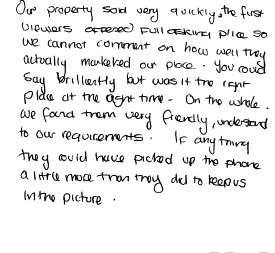 Our property sold very quickly, the first
viewers offered full asking price so
we cannot comment on how well they
actually marketed our place. You could
say brilliantly but was it the right
place at the right time. On the whole
we found them very friendly, understand
to our requirements. If anything
they could have picked up the phone
a little more than they did to keep us
in the picture.